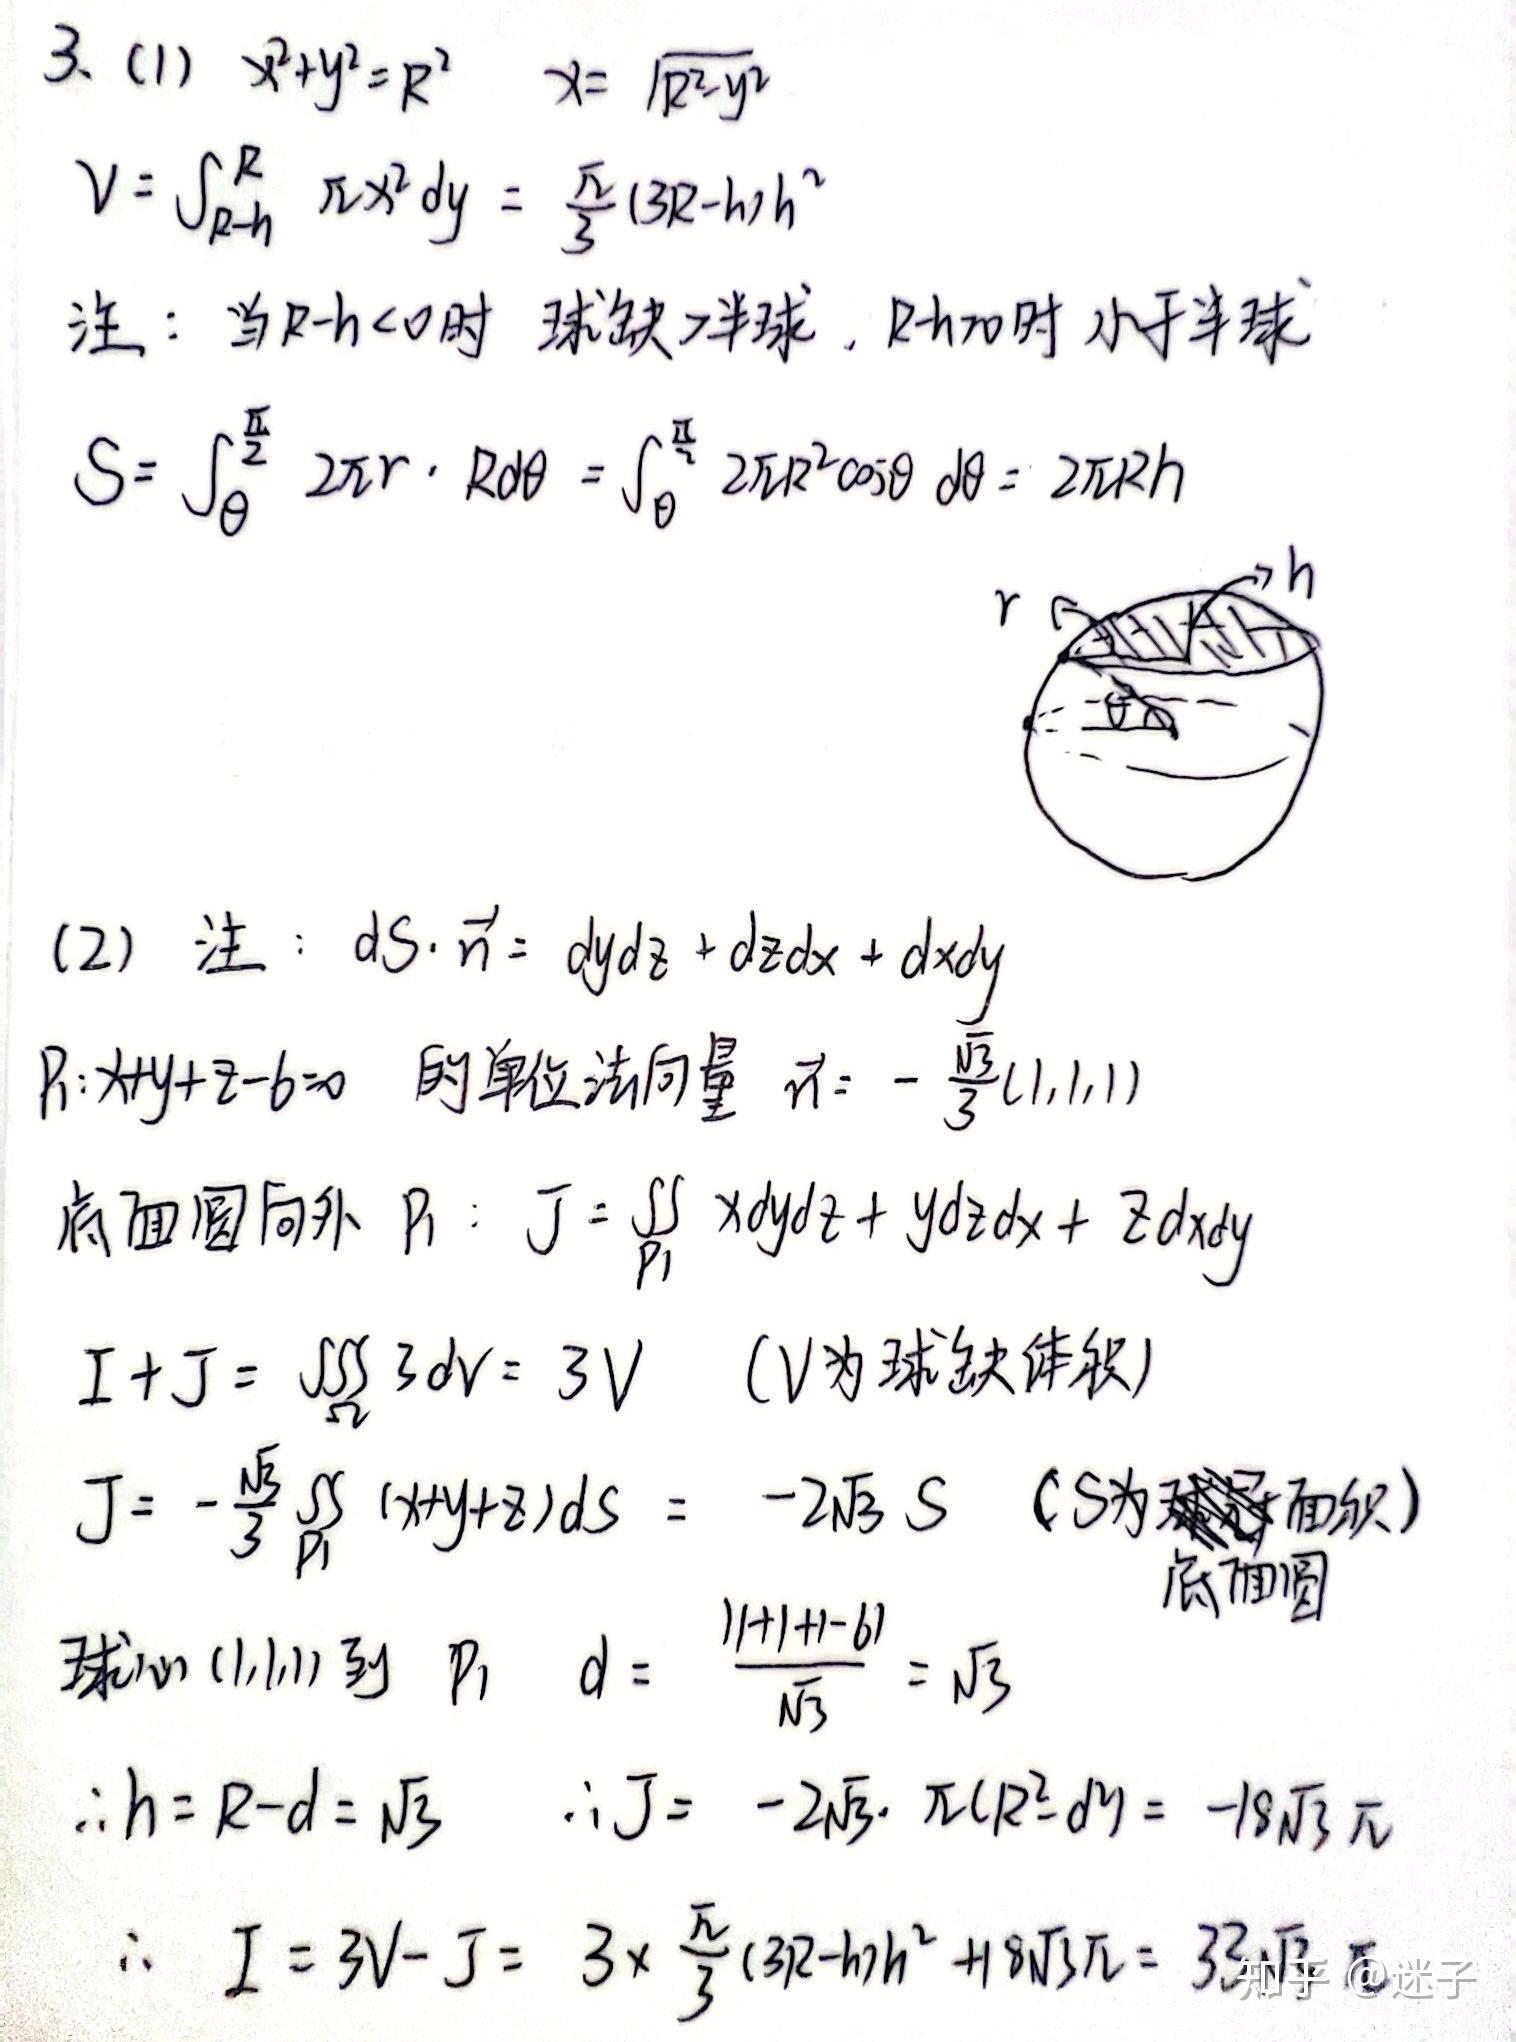 3、(1) x²+y²=R² x=√(R²-y²)
V=∫_{R-h}^{R} πx²dy = π/3 (3R-h)h²
注：当R-h<0时 球缺>半球，R-h>0时 小于半球
S=∫_θ^{π/2} 2πr·Rdθ =∫_θ^{π/2} 2πR²cosθ dθ= 2πRh
h
r
θ
(2) 注：dS·n⃗= dydz+dzdx+dxdy
P₁:x+y+z-6=0 的单位法向量 n⃗= -√3/3 (1,1,1)
底面圆向外 P₁： J=∬_{P₁} xdydz+ydzdx+zdxdy
I+J=∭_Ω 3dV= 3V (V为球缺体积)
J= -√3/3 ∬_{P₁} (x+y+z)dS = -2√3 S (S为 面积)
底面圆
球心(1,1,1)到 P₁ d= |1+1+1-6|/√3 =√3
∴h=R-d=√3 ∴J= -2√3·π(R²-d²)= -18√3π
∴ I=3V-J= 3×π/3 (3R-h)h²+18√3π= 33√3π
知乎 @迷子